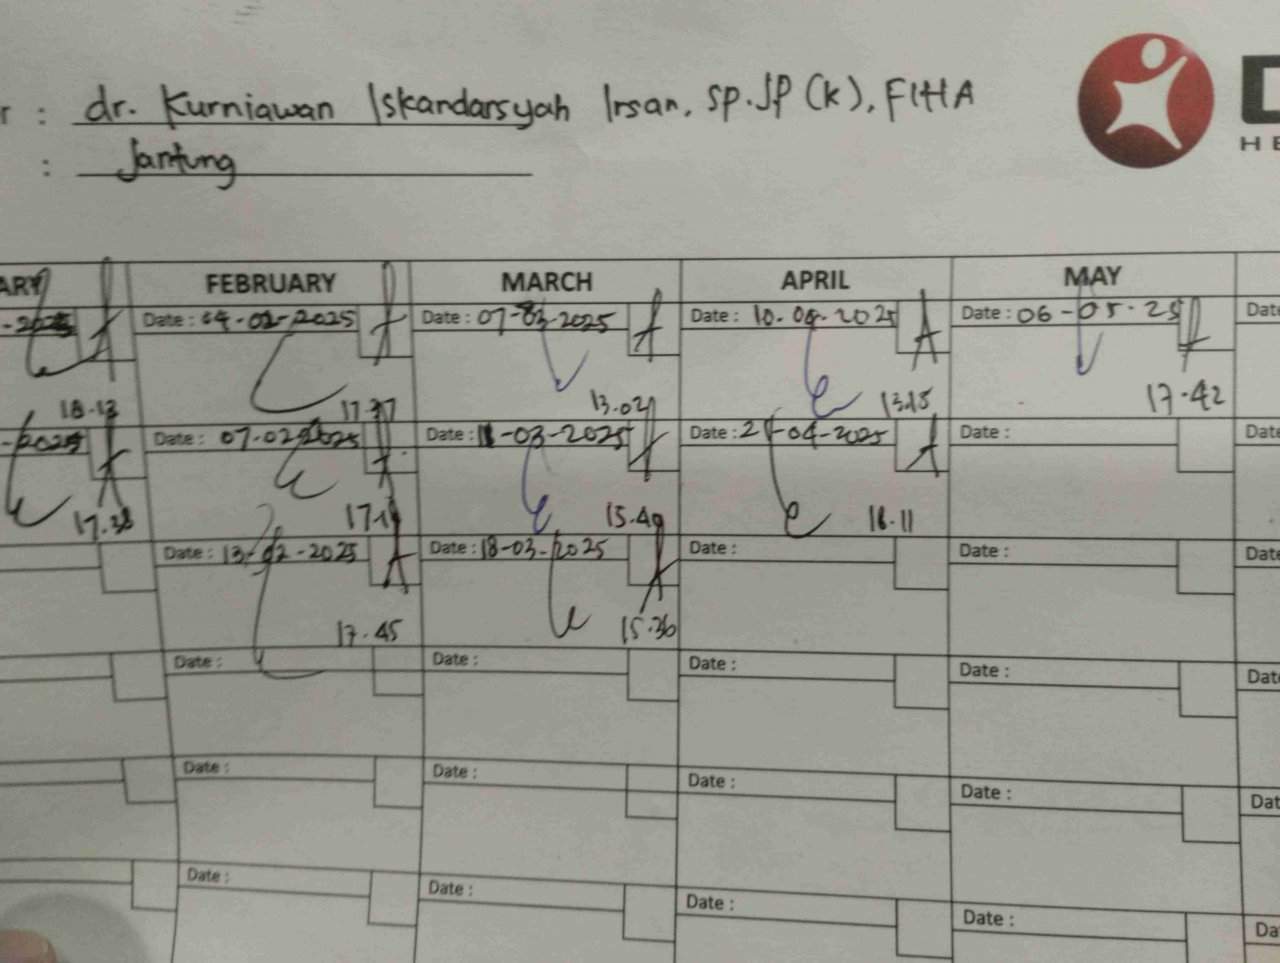 r : dr. Kurniawan Iskandarsyah Irsan, Sp.JP (K), FIHA
: Jantung
D
HE
ARY FEBRUARY MARCH APRIL MAY
-2025 Date : 04-02-2025 Date : 07-03-2025 Date : 10-04-2025 Date : 06-05-25 Date
18.13 13.02 13.15 17.42
-2025 Date : 07-02-2025 Date : -03-2025 Date : -04-2025 Date : Date
17.38 15.49
Date : 13-02-2025 Date : 18-03-2025 Date : Date : Date
17.45 15.36
Date : Date : Date : Date : Date
Date : Date : Date : Date : Dat
Date : Date : Date : Date : Da